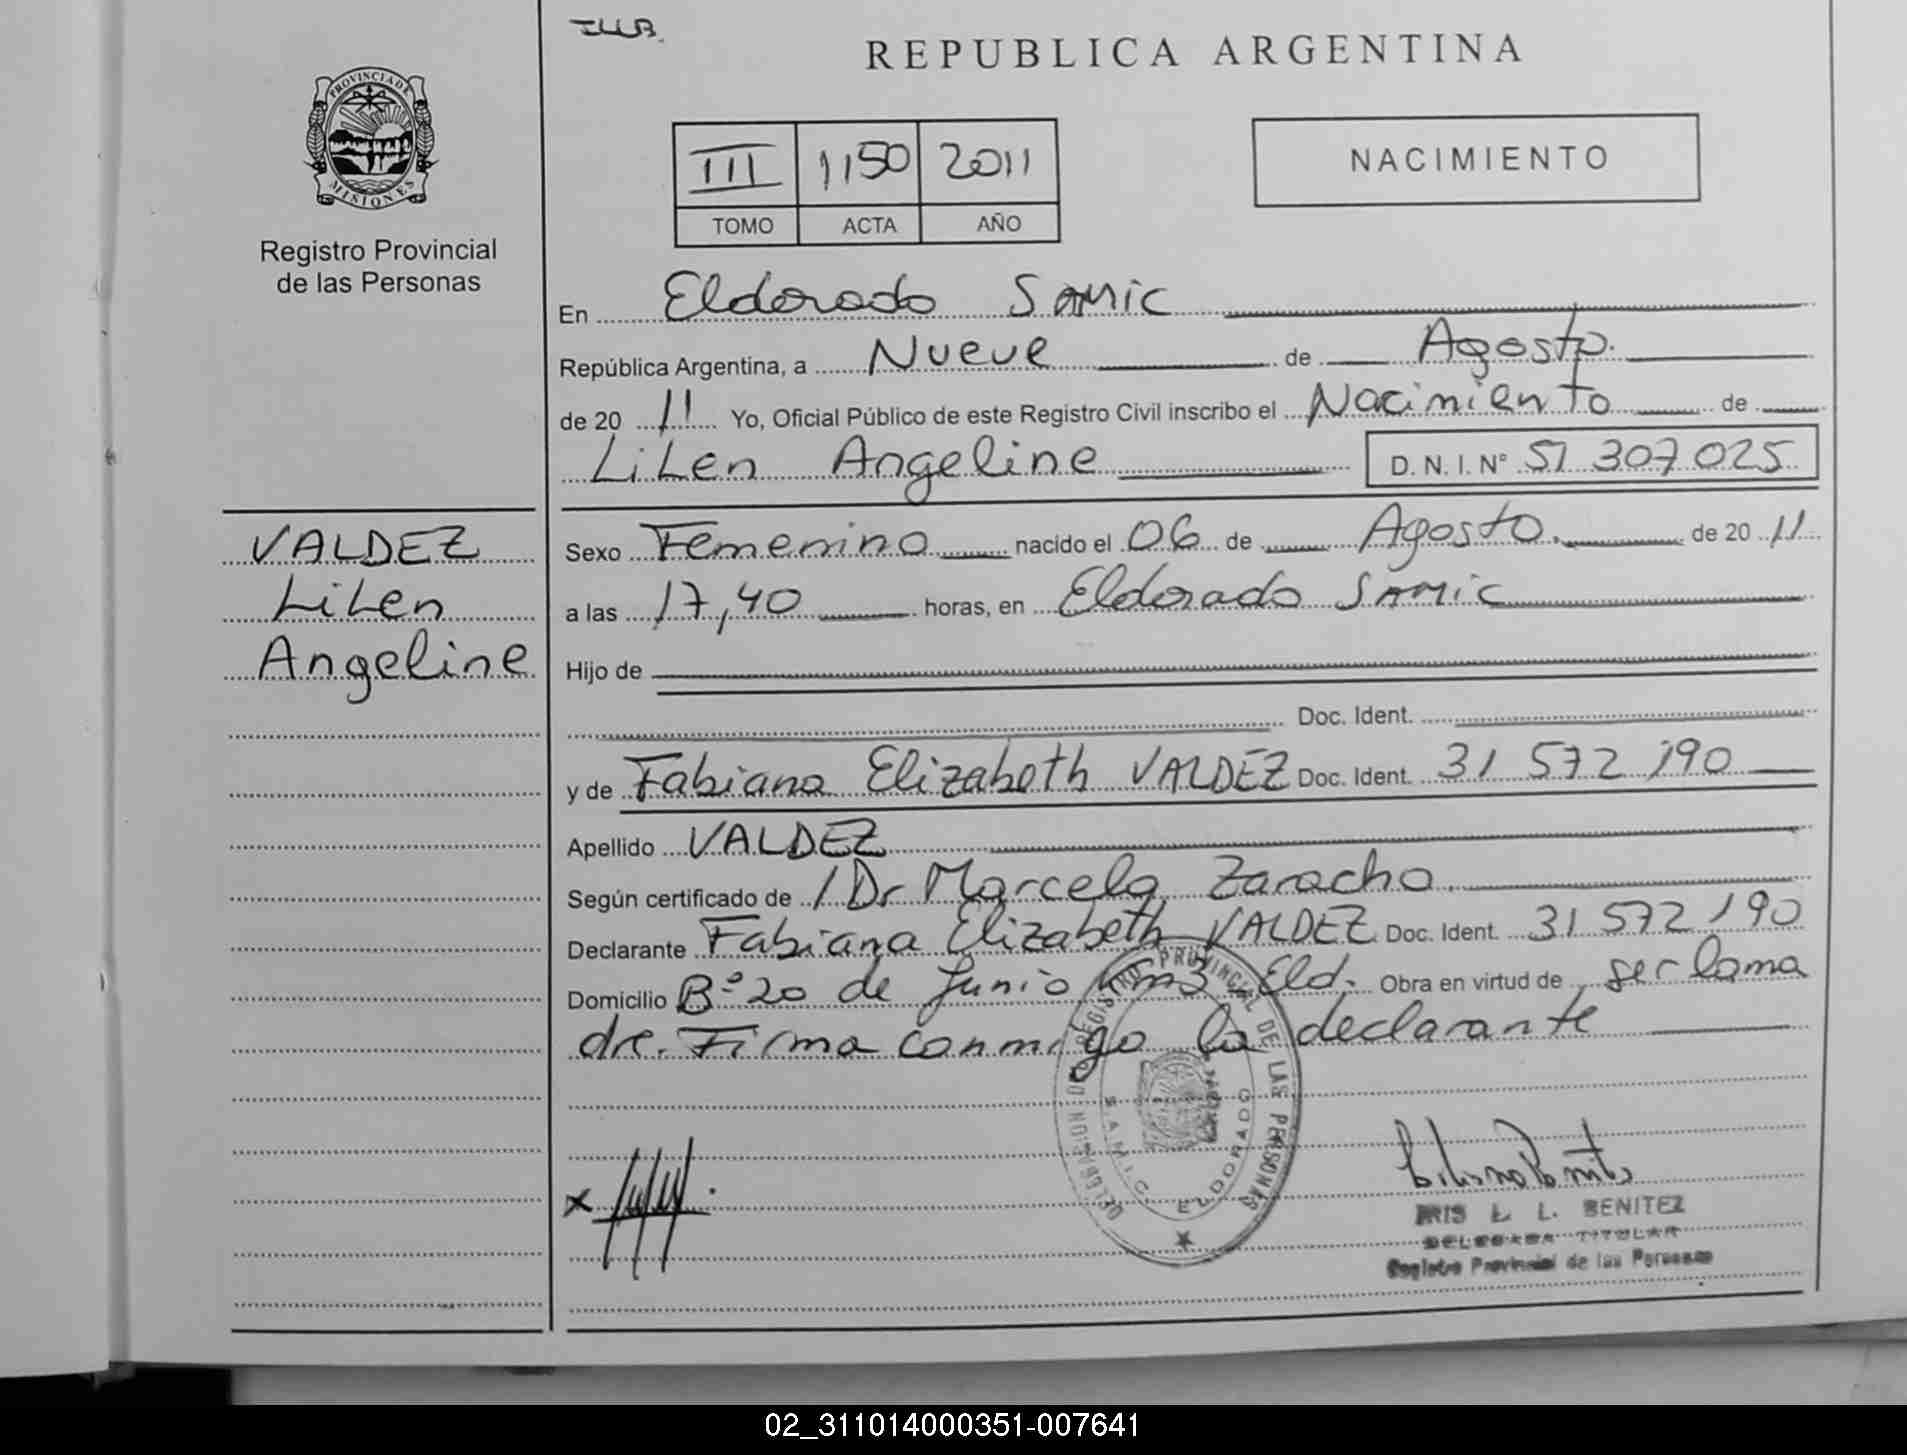 REPUBLICA ARGENTINA
PROVINCIA DE MISIONES
Registro Provincial
de las Personas
III 1150 2011
TOMO ACTA AÑO
NACIMIENTO
En Eldorado SAMIC
República Argentina, a Nueve de Agosto.
de 20 11 Yo, Oficial Público de este Registro Civil inscribo el Nacimiento de
LiLen Angeline D. N. I. N° 51 307 025
VALDEZ
LiLen
Angeline
Sexo Femenino nacido el 06 de Agosto. de 20 11
a las 17,40 horas, en Eldorado SAMIC
Hijo de
Doc. Ident.
y de Fabiana Elizabeth VALDEZ Doc. Ident. 31 572 190
Apellido VALDEZ
Según certificado de /Dr Marcela Zaracho.
Declarante Fabiana Elizabeth VALDEZ Doc. Ident. 31 572 190
Domicilio B° 20 de Junio Km3 Eld. Obra en virtud de ser la ma
dre. Firma conmigo la declarante
DELEGACION DEL REGISTRO PROVINCIAL DE LAS PERSONAS
SAMIC ELDORADO
IRIS L. L. BENITEZ
DELEGADA TITULAR
Registro Provincial de las Personas
02_311014000351-007641